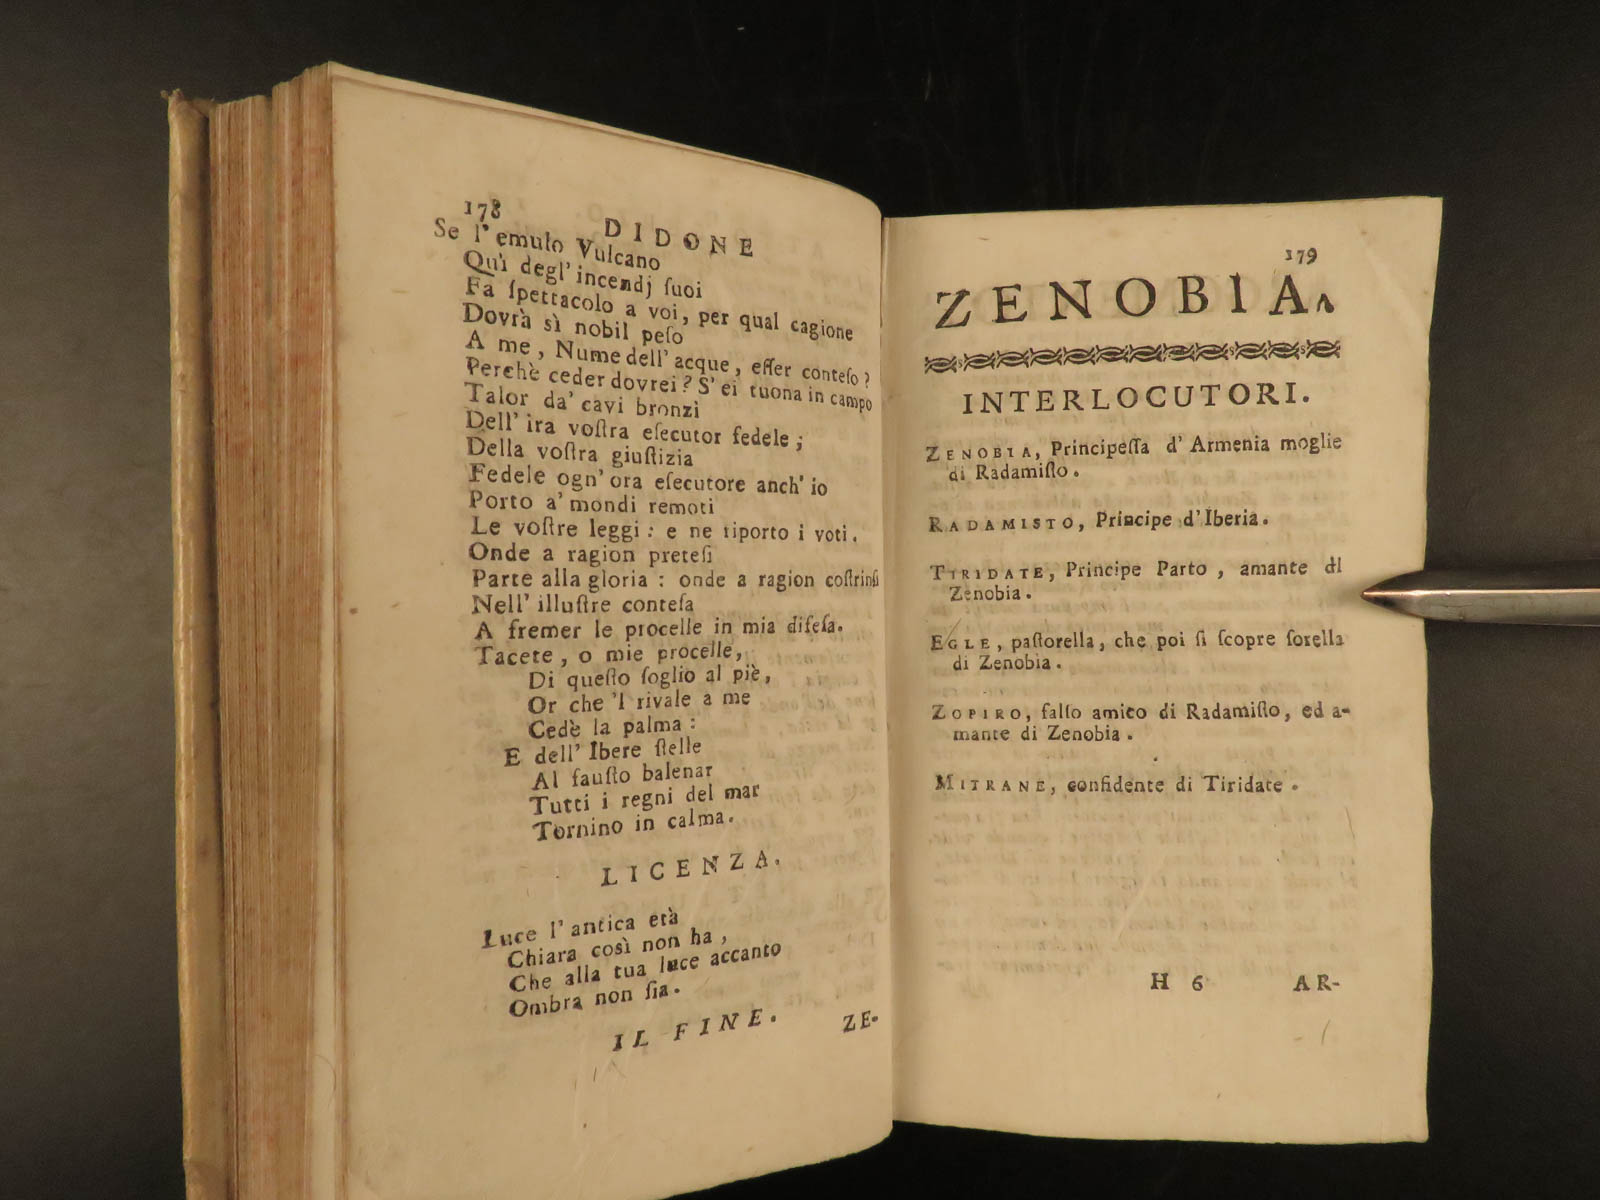 178
DIDONE
Se l'emulo Vulcano
Quì degl'incendj ſuoi
Fa ſpettacolo a voi, per qual cagione
Dovrà sì nobil peſo
A me, Nume dell'acque, eſſer conteſo?
Perchè ceder dovrei? S'ei tuona in campo
Talor da' cavi bronzi
Dell'ira voſtra eſecutor fedele;
Della voſtra giuſtizia
Fedele ogn'ora eſecutore anch'io
Porto a' mondi remoti
Le voſtre leggi: e ne riporto i voti.
Onde a ragion preteſi
Parte alla gloria: onde a ragion coſtrinſi
Nell'illuſtre conteſa
A fremer le procelle in mia difeſa.
Tacete, o mie procelle,
Di queſto ſoglio al piè,
Or che 'l rivale a me
Cedè la palma:
E dell'Ibere ſtelle
Al fauſto balenar
Tutti i regni del mar
Tornino in calma.
LICENZA.
Luce l'antica età
Chiara così non ha,
Che alla tua luce accanto
Ombra non ſia.
IL FINE.
ZE-
179
ZENOBIA.
INTERLOCUTORI.
ZENOBIA, Principeſſa d'Armenia moglie
di Radamiſto.
RADAMISTO, Principe d'Iberia.
TIRIDATE, Principe Parto, amante di
Zenobia.
EGLE, paſtorella, che poi ſi ſcopre ſorella
di Zenobia.
ZOPIRO, falſo amico di Radamiſto, ed a-
mante di Zenobia.
MITRANE, confidente di Tiridate.
H 6
AR-